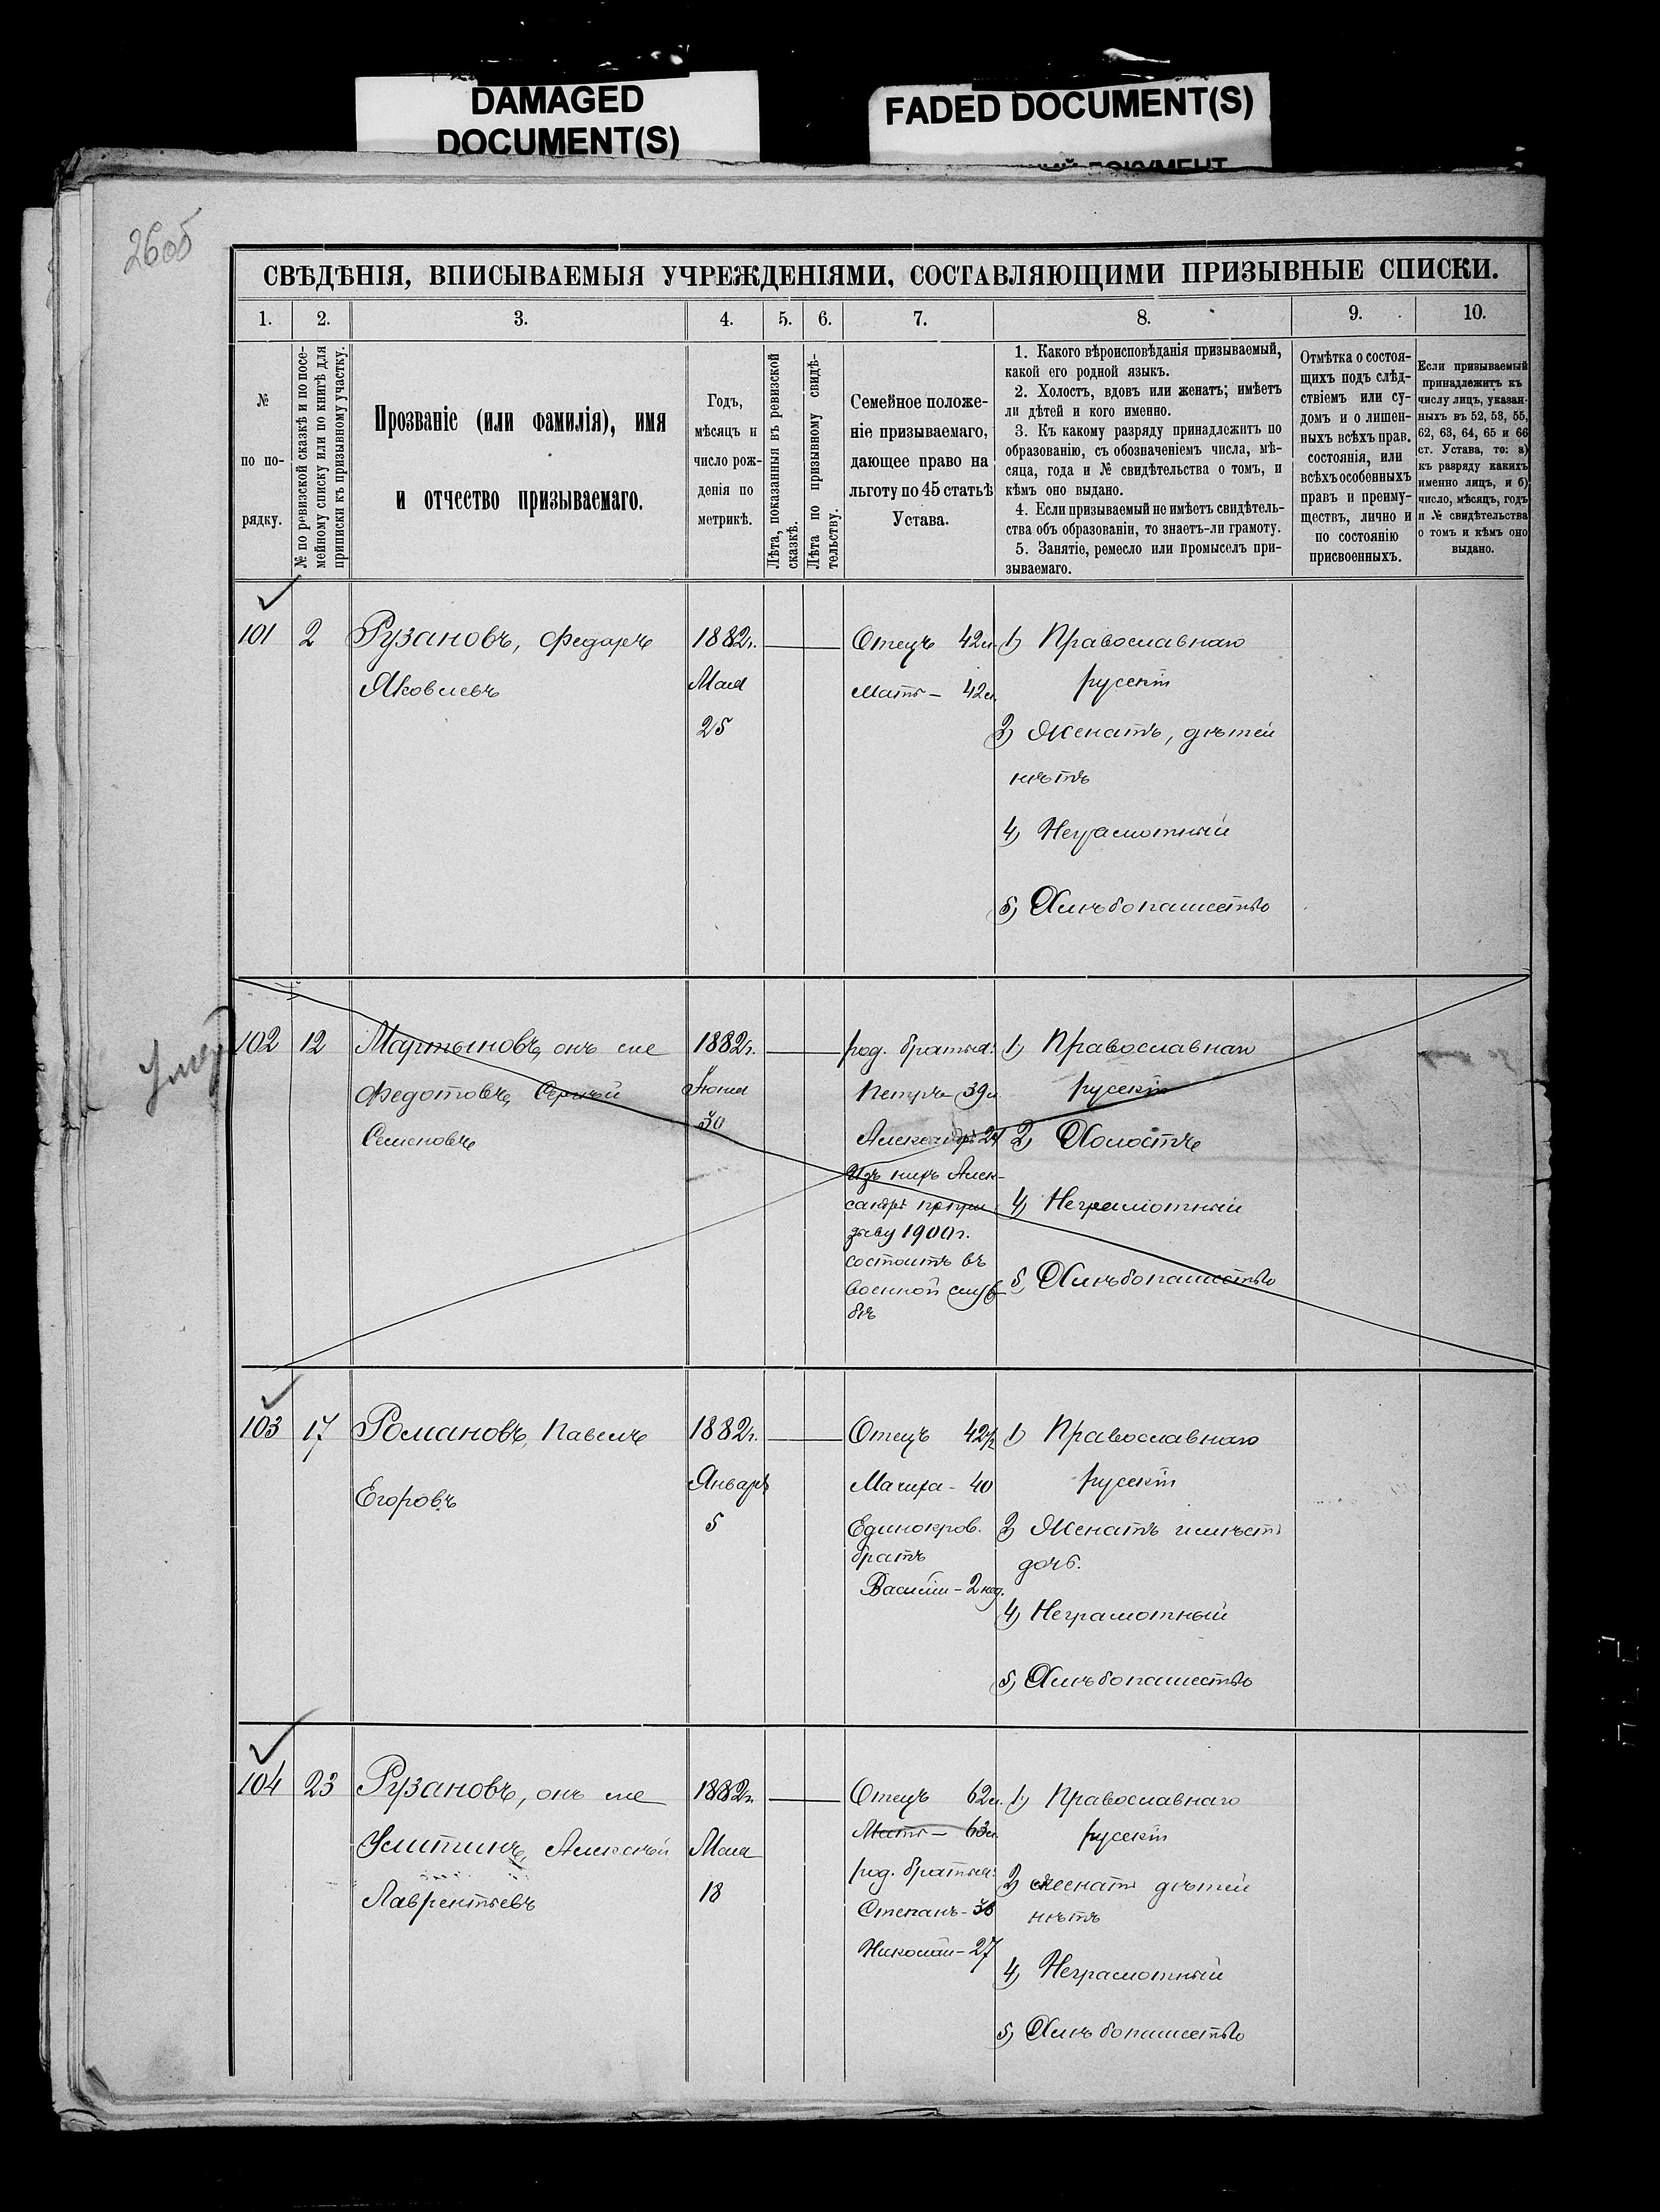 DAMAGED
DOCUMENT(S)
FADED DOCUMENT(S)
ДОКУМЕНТ
26об
СВѢДѢНІЯ, ВПИСЫВАЕМЫЯ УЧРЕЖДЕНІЯМИ, СОСТАВЛЯЮЩИМИ ПРИЗЫВНЫЕ СПИСКИ.
1. 2. 3. 4. 5. 6. 7. 8. 9. 10.
№
по по-
рядку.
№ по ревизской сказкѣ и по посе-
мейному списку или по книгѣ для
приписки къ призывному участку.
Прозваніе (или фамилія), имя
и отчество призываемаго.
Годъ,
мѣсяцъ и
число рож-
денія по
метрикѣ.
Лѣта, показанныя въ ревизской
сказкѣ.
Лѣта по призывному свидѣ-
тельству.
Семейное положе-
ніе призываемаго,
дающее право на
льготу по 45 статьѣ
Устава.
1. Какого вѣроисповѣданія призываемый,
какой его родной языкъ.
2. Холостъ, вдовъ или женатъ; имѣетъ
ли дѣтей и кого именно.
3. Къ какому разряду принадлежитъ по
образованію, съ обозначеніемъ числа, мѣ-
сяца, года и № свидѣтельства о томъ, и
кѣмъ оно выдано.
4. Если призываемый не имѣетъ свидѣтель-
ства объ образованіи, то знаетъ-ли грамоту.
5. Занятіе, ремесло или промыселъ при-
зываемаго.
Отмѣтка о состоя-
щихъ подъ слѣд-
ствіемъ или су-
домъ и о лишен-
ныхъ всѣхъ прав.
состоянія, или
всѣхъ особенныхъ
правъ и преиму-
ществъ, лично и
по состоянію
присвоенныхъ.
Если призываемый
принадлежитъ къ
числу лицъ, указан-
ныхъ въ 52, 53, 55,
62, 63, 64, 65 и 66
ст. Устава, то: а)
къ разряду какихъ
именно лицъ, и б)
число, мѣсяцъ, годъ
и № свидѣтельства
о томъ и кѣмъ оно
выдано.
101 2 Рузановъ, Федоръ
Яковлевъ
1882г.
Мая
25
Отецъ 42л.
Мать – 42л.
1) Православнаго
русскій
2) Женатъ, дѣтей
нѣтъ
4) Неграмотный
5) Хлѣбопашество
102 12 Мартыновъ, онъ же
Федотовъ, Сергѣй
Семеновъ
1882г.
Іюня
30
род. братья:
Петръ – 39л
Александръ 24
Изъ нихъ Алек-
сандръ при-
зыву 1900г.
состоитъ въ
военной служ-
бѣ
1) Православнаго
русскій
2) Холостъ
4) Неграмотный
5) Хлѣбопашество
103 17 Романовъ, Павелъ
Егоровъ
1882г.
Январь
5
Отецъ 42½
Мачиха – 40
Единокров.
братъ
Василій – 2 нед.
1) Православнаго
русскій
2) Женатъ имѣетъ
дочь.
4) Неграмотный
5) Хлѣбопашество
104 23 Рузановъ, онъ же
Устинъ, Алексѣй
Лаврентьевъ
1882г.
Мая
18
Отецъ 62л.
Мать – 63л.
род. братья:
Степанъ – 38
Николай – 27
1) Православнаго
русскій
2) женатъ дѣтей
нѣтъ
4) Неграмотный
5) Хлѣбопашество